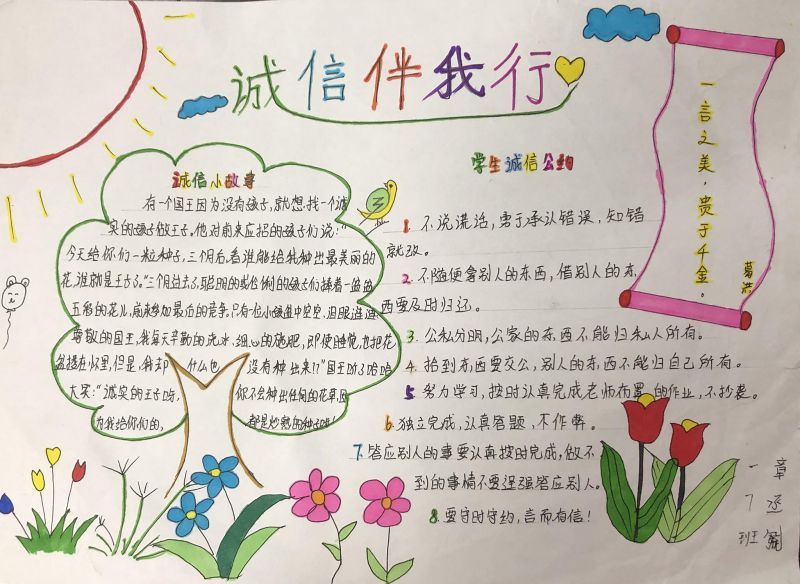 诚信伴我行
诚信小故事
有一个国王因为没有孩子,就想找一个诚
实的孩子做王子。他对前来应招的孩子们说:"
今天给你们一粒种子,三个月后,看谁能给我种出最美丽的
花,谁就是王子。"三个月过去了,聪明的孩子们捧着一盆盆
五彩的花儿,前来参加最后的竞争,只有一位小孩盆中空空,泪眼汪汪
尊敬的国王,我每天辛勤的浇水、细心的施肥,即使睡觉,也把花
盆搂在怀里,但是,我却 什么也 没有种出来!!"国王听了哈哈
大笑:"诚实的王子呀, 你不会种出任何的花草,因
为我给你们的, 都是炒熟的种子呀!
学生诚信公约
1. 不说谎话,勇于承认错误,知错
就改。
2. 不随便拿别人的东西,借别人的东
西要及时归还。
3. 公私分明,公家的东西不能归私人所有。
4. 拾到东西要交公,别人的东西不能归自己所有。
5. 努力学习,按时认真完成老师布置的作业,不抄袭。
6. 独立完成,认真答题,不作弊。
7. 答应别人的事要认真按时完成,做不
到的事情不要逞强答应别人。
8. 要守时守约,言而有信!
一言之美,贵于千金。
葛洪
一7班
章丞